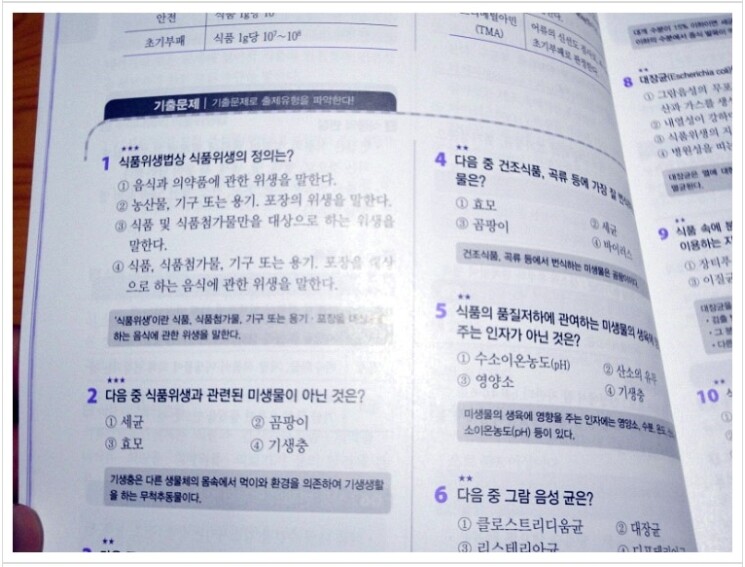 안전
식품 1g당 10⁵
초기부패 식품 1g당 10⁷~10⁸
(TMA)
어류의 신선도
초기부패로 판정한다.
기출문제 | 기출문제로 출제유형을 파악한다!
★★★
1 식품위생법상 식품위생의 정의는?
① 음식과 의약품에 관한 위생을 말한다.
② 농산물, 기구 또는 용기·포장의 위생을 말한다.
③ 식품 및 식품첨가물만을 대상으로 하는 위생을
말한다.
④ 식품, 식품첨가물, 기구 또는 용기·포장을 대상
으로 하는 음식에 관한 위생을 말한다.
'식품위생'이란 식품, 식품첨가물, 기구 또는 용기·포장을 대상으로
하는 음식에 관한 위생을 말한다.
★★★
2 다음 중 식품위생과 관련된 미생물이 아닌 것은?
① 세균 ② 곰팡이
③ 효모 ④ 기생충
기생충은 다른 생물체의 몸속에서 먹이와 환경을 의존하여 기생생활
을 하는 무척추동물이다.
★★
★★
4 다음 중 건조식품, 곡류 등에 가장 잘
물은?
① 효모 ② 세균
③ 곰팡이 ④ 바이러스
건조식품, 곡류 등에서 번식하는 미생물은 곰팡이이다.
★★
5 식품의 품질저하에 관여하는 미생물의 생육에
주는 인자가 아닌 것은?
① 수소이온농도(pH) ② 산소의 유무
③ 영양소 ④ 기생충
미생물의 생육에 영향을 주는 인자에는 영양소, 수분, 온도,
소이온농도(pH) 등이 있다.
★★
6 다음 중 그람 음성 균은?
① 클로스트리디움균 ② 대장균
③ 리스테리아균
8 대장균(Escherichia coli)
① 그람음성의 무포
산과 가스를 생
② 내열성이 강하
③ 식품위생의 지
④ 병원성을 띠는
대장균은 열에
멸균된다.
★★
9 식품 속에
이용하는
① 장티푸
③ 이질균
10